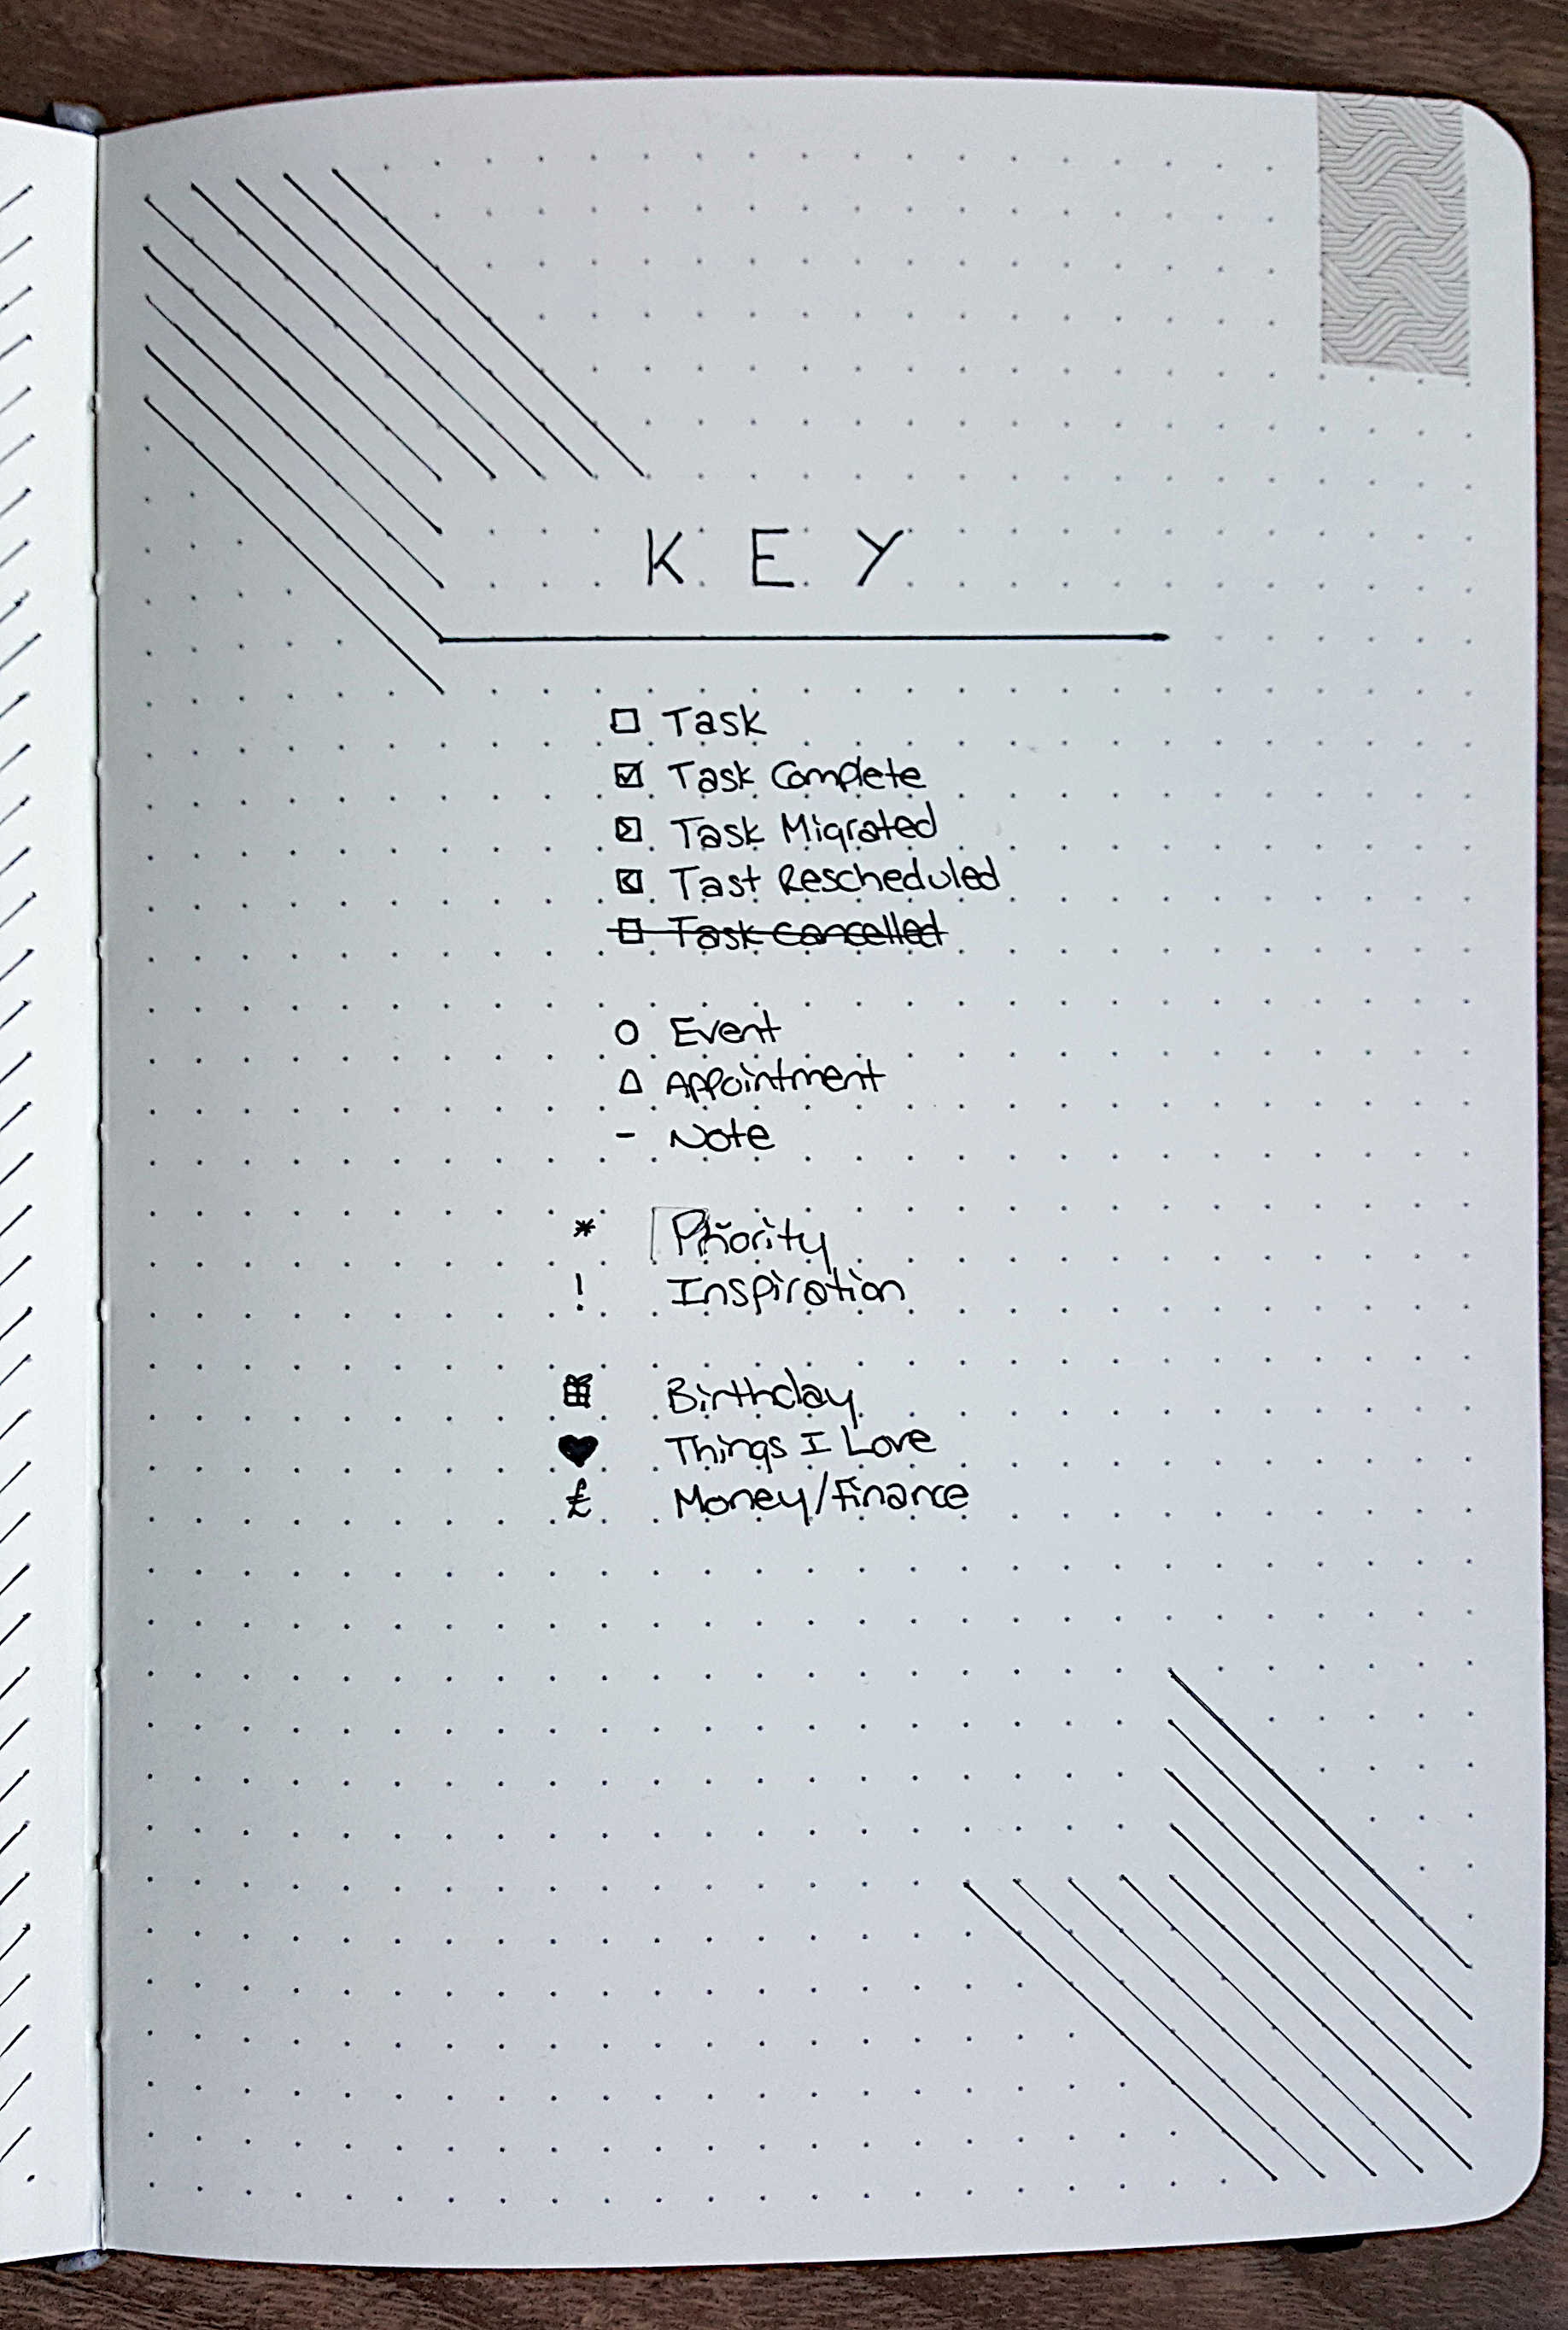 KEY
☐ Task
☑ Task Complete
> Task Migrated
< Tast Rescheduled
☐ Task Cancelled
○ Event
△ Appointment
- Note
* Priority
! Inspiration
Birthday
♥ Things I Love
£ Money/Finance